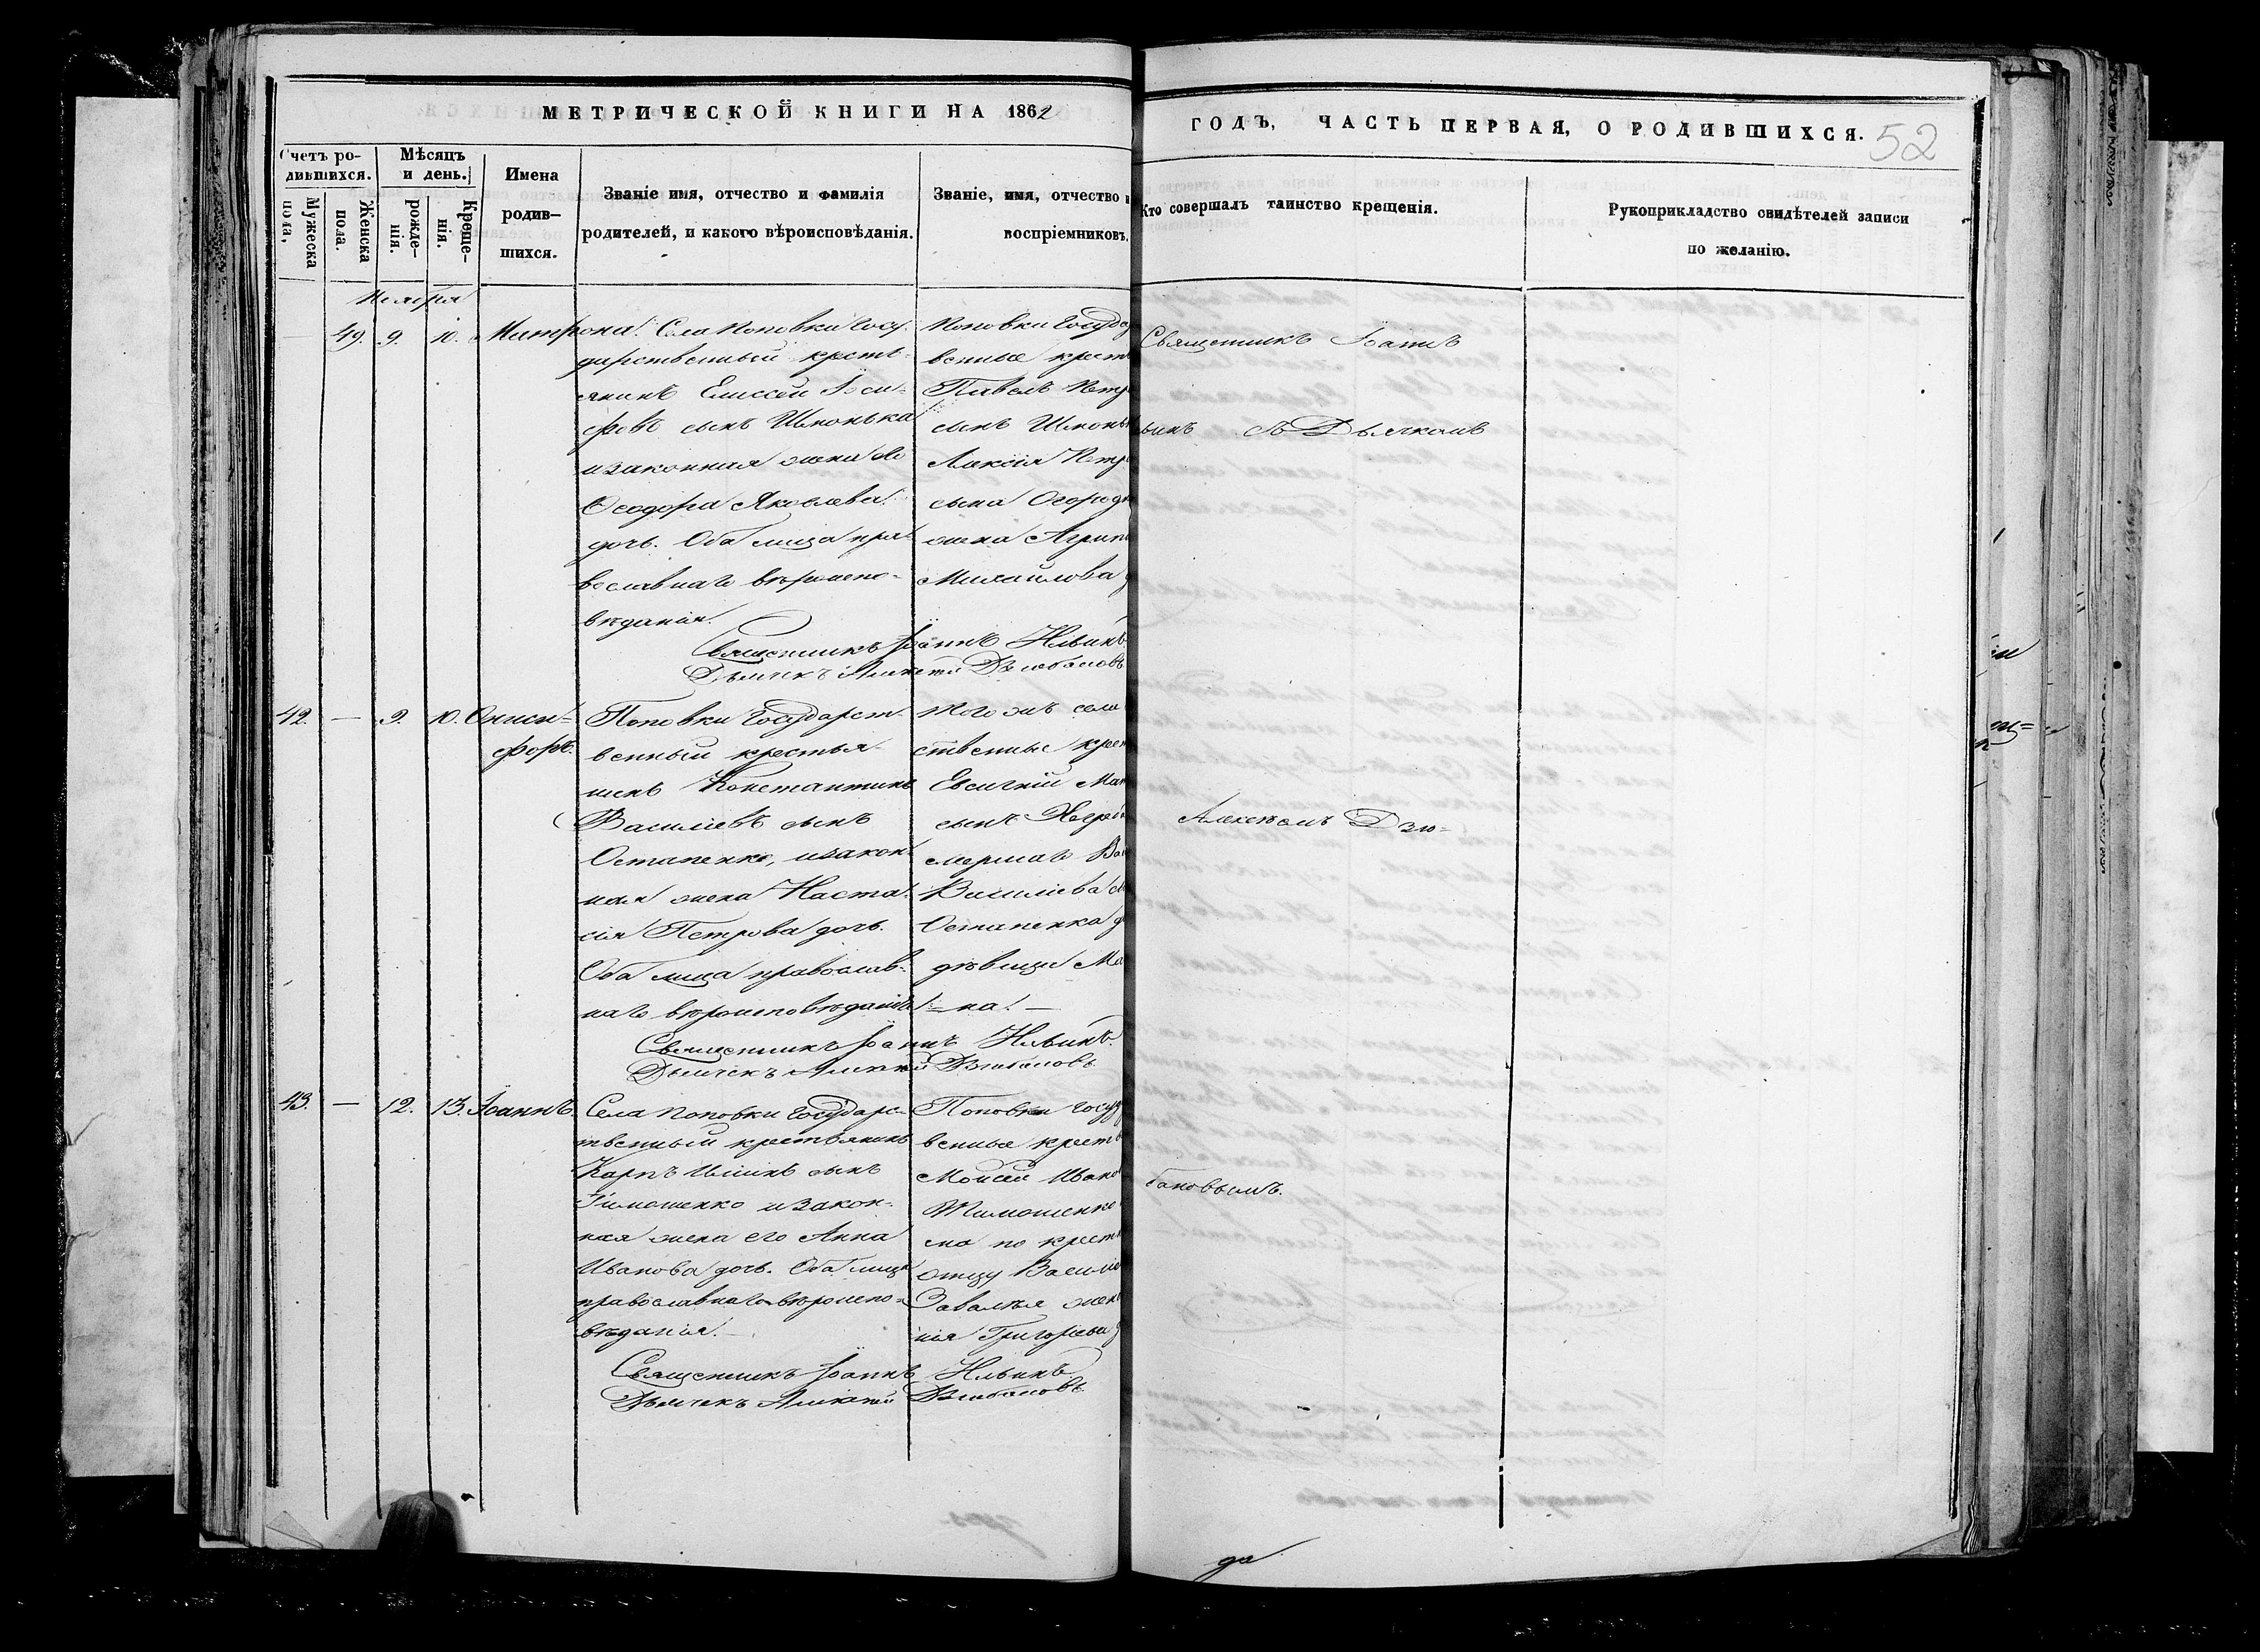 МЕТРИЧЕСКОЙ КНИГИ НА 1862
ГОДЪ, ЧАСТЬ ПЕРВАЯ, О РОДИВШИХСЯ.
52
Счетъ ро-
дившихся.
Мужеска
пола,
Женска
пола.
Мѣсяцъ
и день.
рожде-
нія.
Креще-
нія.
Имена
родив-
шихся.
Званіе имя, отчество и фамилія
родителей, и какого вѣроисповѣданія.
Званіе, имя, отчество и
воспріемниковъ.
Кто совершалъ таинство крещенія.
Рукоприкладство свидѣтелей записи
по желанію.
Ноября
49. 9. 10. Матрона.
Села Поповки Госу-
дарственный кресть-
янинъ Елиссей Іоси-
фовъ сынъ Шмонька
и законная жена его
Ѳеодора Яковлева
дочь. Оба лица пра-
вославнаго вѣроиспо-
вѣданія.
Поповки Государ
венные крест
Павелъ Петр
сынъ Шмонь
Алексія Петр
сына Огородн
жена Агрип
Михайлова д
Священникъ Іоаннъ Ильинъ.
Дьячекъ Алексѣй Дзюбановъ
42. — 9. 10. Ониси-
форъ.
Поповки Государст-
венный крестья-
нинъ Константинъ
Василіевъ сынъ
Остапенко, и закон-
ная жена Наста-
сія Петрова дочь.
Оба лица православ-
наго вѣроисповѣданія
того жъ села
ственные крес
Евсигній Мак
сынъ
смершаго Ва
Василіева сы
Остапенка д
дѣвица Ма
на. —
Священникъ Іоаннъ Ильинъ.
Дьячекъ Алексѣй Дзюбановъ
43. — 12. 13. Іоаннъ.
Села Поповки Государс-
твенный крестьянинъ
Карпъ Илiинъ сынъ
Тимошенко и закон-
ная жена его Анна
Иванова дочь. Оба лица
православнаго вѣроиспо-
вѣданія. —
Поповки Госуд
венные крестья
Моисей Ивано
Тимошенко
ма по крест
отцу Василіе
Завалѣя жен
нія Григоріева д
Священникъ Іоаннъ Ильинъ
Дьячекъ Алексѣй Дзюбановъ
Священникъ Іоаннъ
ьинъ съ Дьячкомъ
Алексѣемъ Дзю-
бановымъ.
да